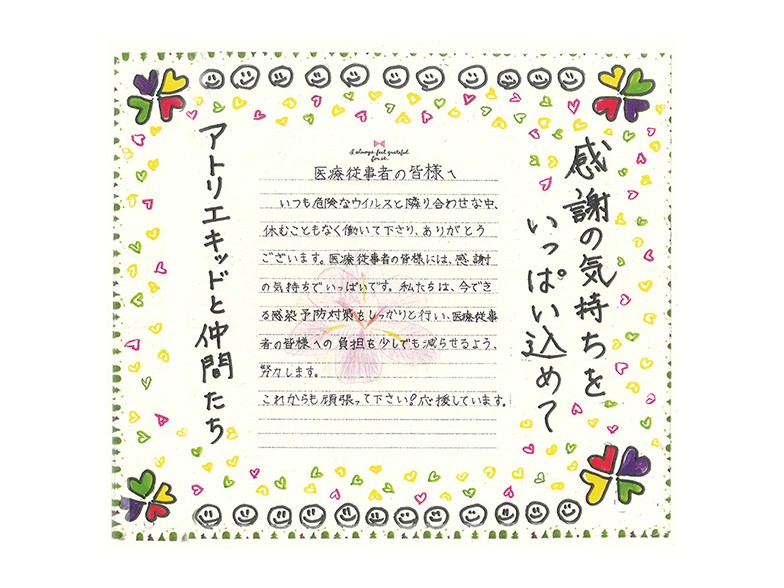 感謝の気持ちを
いっぱい込めて
I always feel grateful
for it.
医療従事者の皆様へ
いつも危険なウイルスと隣り合わせな中、
休むこともなく働いて下さり、ありがとう
ございます。医療従事者の皆様には、感謝
の気持ちでいっぱいです。私たちは、今でき
る感染予防対策をしっかりと行い、医療従事
者の皆様への負担を少しでも減らせるよう、
努力します。
これからも頑張って下さい!応援しています。
アトリエキッドと仲間たち